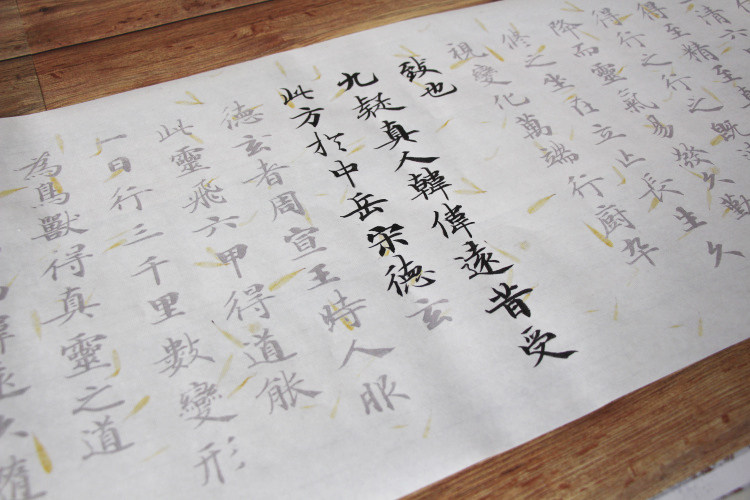 清六
得至精至真
得行之行之既
降而靈氣易發久勤
修之坐在立亡長生久
視變化萬端行廚卒
致也
九疑真人韓偉遠昔受
此方於中岳宋德玄
德玄者周宣王時人服
此靈飛六甲得道能
一日行三千里數變形
為鳥獸得真靈之道
偉遠久隨